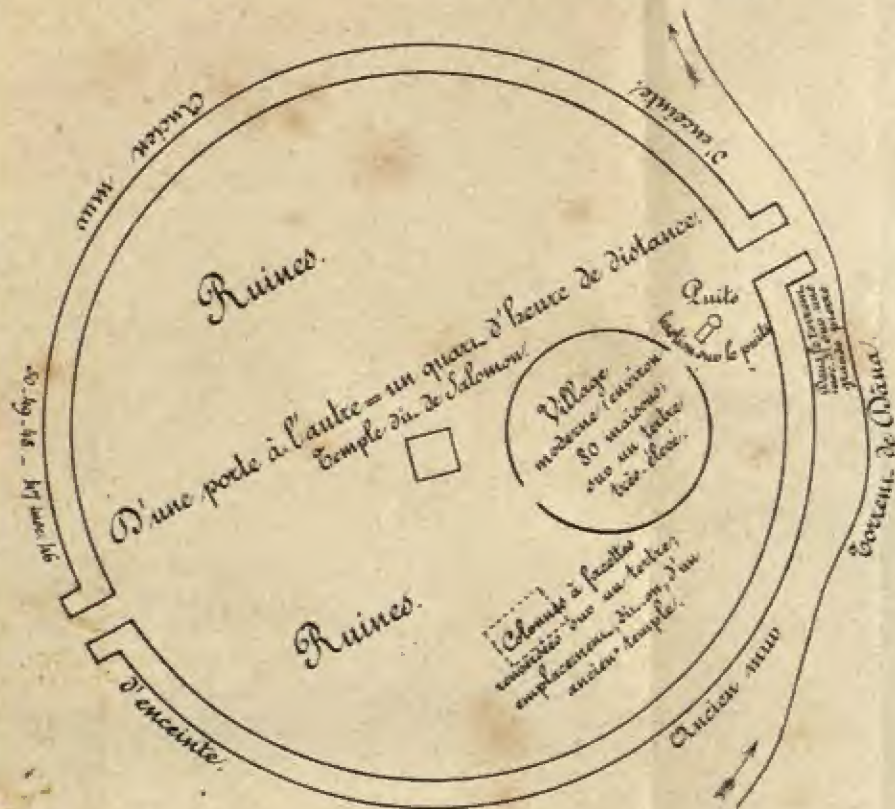 Ancien mur
d'enceinte.
Ruines.
D'une porte à l'autre = un quart d'heure de distance.
Temple dit de Salomon.
Puits
inscription sur le puits.
Village
moderne (environ
80 maisons)
sur un tertre
très élevé.
Torrent de Dana.
Ruines.
Colonnes à facettes
renversées sur un tertre,
emplacement, dit-on, d'un
ancien temple.
Ancien mur
d'enceinte.